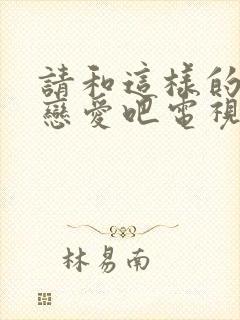 請和這樣的
戀愛吧電視
林易南